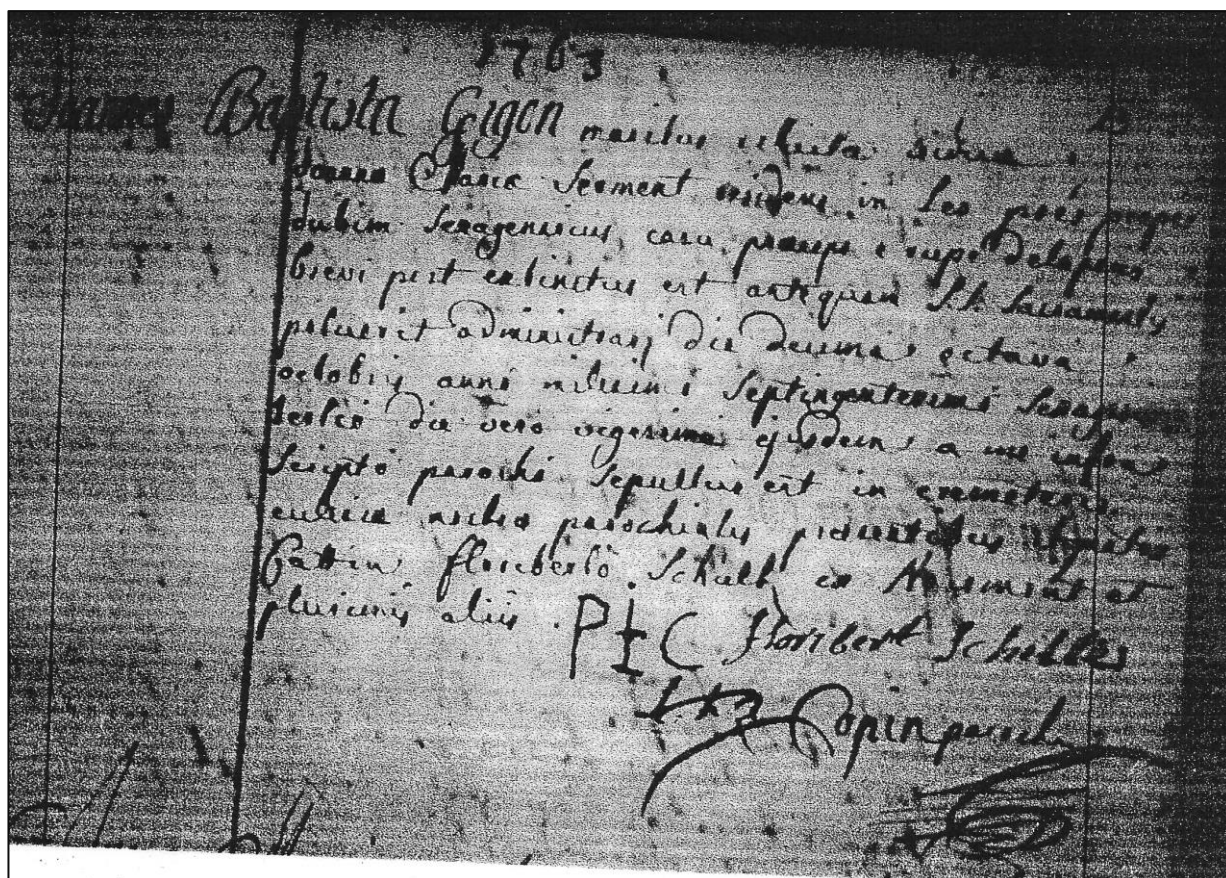 1763
Joannes Baptista Gigon maritus relicta vidua
Joanna Maria Serment residens in Les prés prope
dubim Sexagenarius, casu praeceps e rupe delapsus
brevi post extinctus est antequam S.S. Sacramenta
poluerit administrari die decima octava
octobris anni milesimi Septingentesimi Sexagesimi
tertii die vero vigesima ejusdem a me infra
Scripto parocho Sepultus est in coemeterio
ecclesia nostra parochialis praesentibus
Cattin Floriberto Schult ex Noirmont et
plurimis aliis. P + C Floribert Schultes
Copin parochus